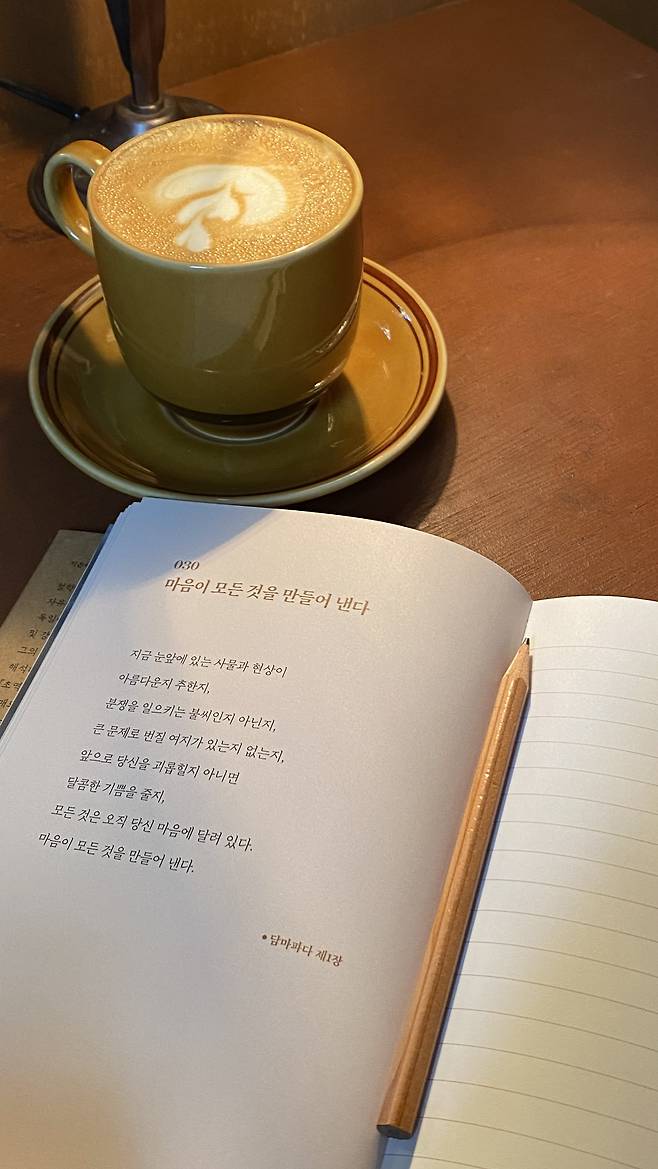 030
마음이 모든 것을 만들어 낸다
지금 눈앞에 있는 사물과 현상이
아름다운지 추한지,
분쟁을 일으키는 불씨인지 아닌지,
큰 문제로 번질 여지가 있는지 없는지,
앞으로 당신을 괴롭힐지 아니면
달콤한 기쁨을 줄지,
모든 것은 오직 당신 마음에 달려 있다.
마음이 모든 것을 만들어 낸다.
• 담마파다 제1장
독일
및 강
그의
해석